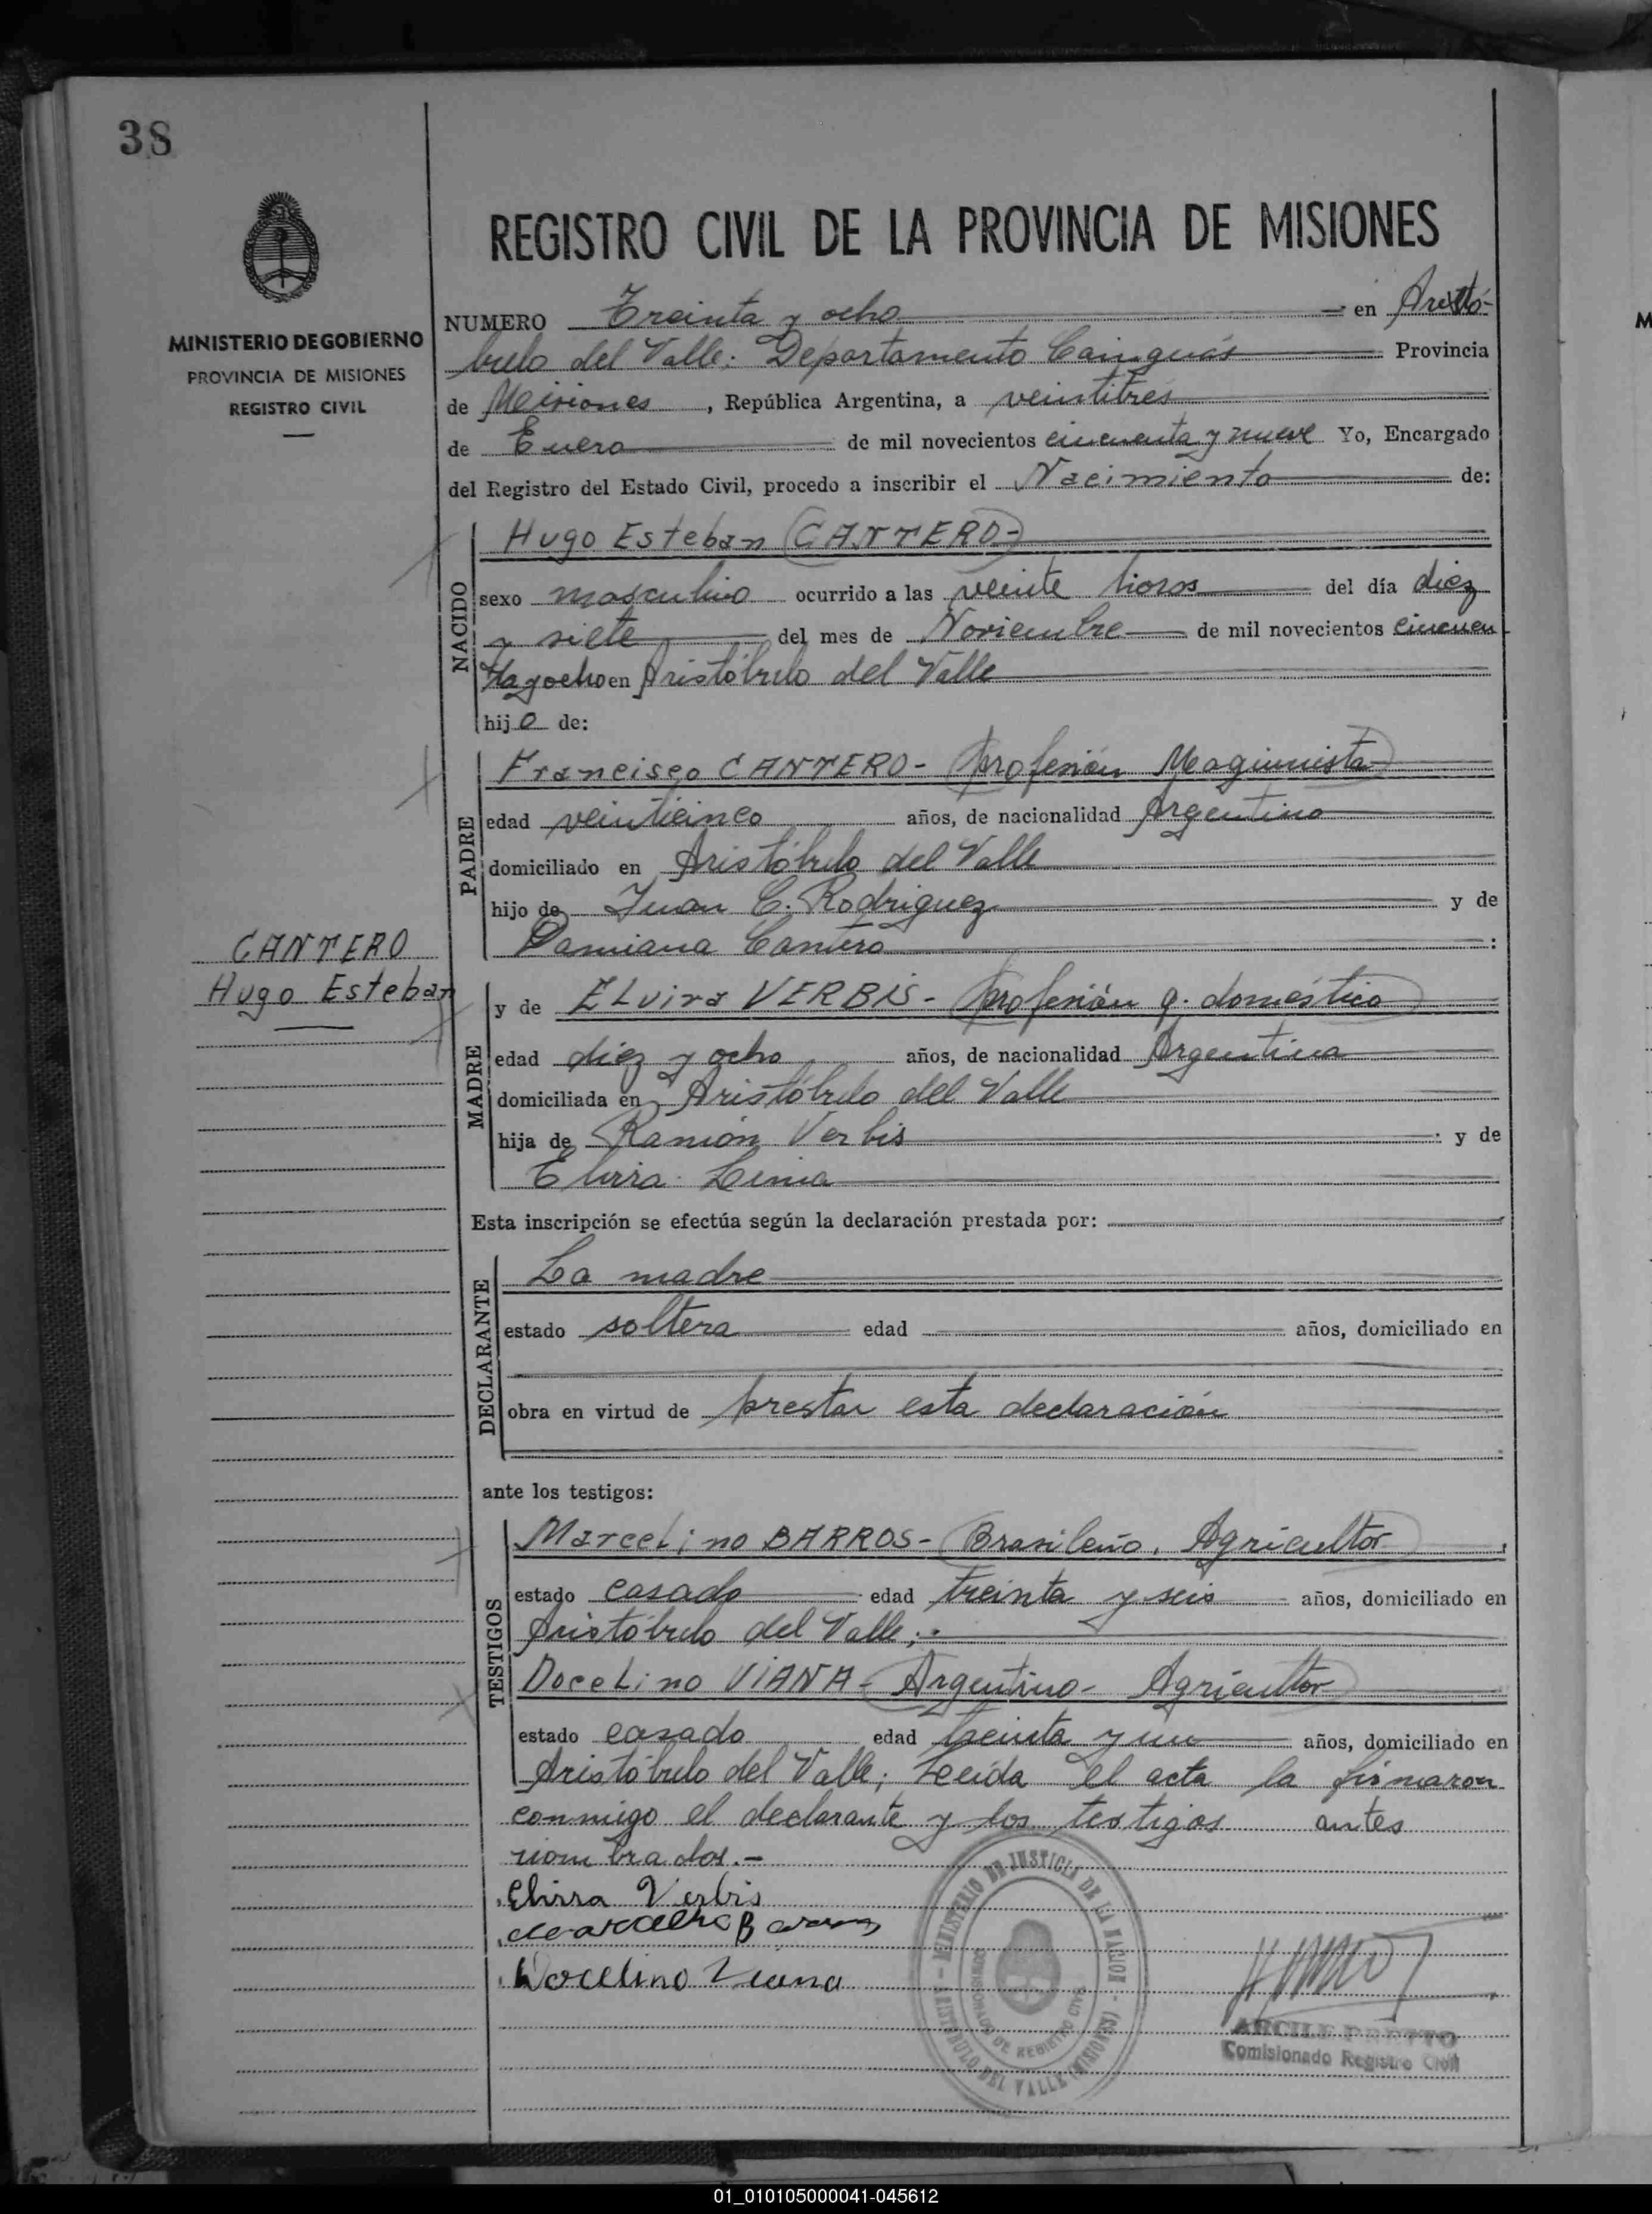 38
REGISTRO CIVIL DE LA PROVINCIA DE MISIONES
MINISTERIO DE GOBIERNO
PROVINCIA DE MISIONES
REGISTRO CIVIL
NUMERO Treinta y ocho en Aristó-
bulo del Valle: Departamento Cainguás Provincia
de Misiones, República Argentina, a veintitrés
de Enero de mil novecientos cincuenta y nueve Yo, Encargado
del Registro del Estado Civil, procedo a inscribir el Nacimiento de:
NACIDO
Hugo Esteban (CANTERO-)
sexo masculino ocurrido a las veinte horas del día diez
y siete del mes de Noviembre de mil novecientos cincuen
ta y ocho en Aristóbulo del Valle
hijo de:
PADRE
Francisco CANTERO- (profesión Maquinista)
edad veinticinco años, de nacionalidad Argentino
domiciliado en Aristóbulo del Valle
hijo de Juan C. Rodriguez y de
Damiana Cantero :
CANTERO
Hugo Esteban
MADRE
y de ELvira VERBIS- (profesión q. doméstico)
edad diez y ocho años, de nacionalidad Argentina
domiciliada en Aristóbulo del Valle
hija de Ramón Verbis : y de
Elvira
Esta inscripción se efectúa según la declaración prestada por:
DECLARANTE
La madre
estado soltera edad años, domiciliado en
obra en virtud de prestar esta declaración
ante los testigos:
TESTIGOS
MarceLino BARROS- (Brasileño, Agricultor)
estado casado edad treinta y seis años, domiciliado en
Aristóbulo del Valle;.
DoceLino VIANA- (Argentino- Agricultor)
estado casado edad treinta y un años, domiciliado en
Aristóbulo del Valle; Leída el acta la firmaron
conmigo el declarante y los testigos antes
nombrados.-
Elvira Verbis
Marcelino Barros
Docelino Viana
MINISTERIO DE JUSTICIA DE LA NACION
ARISTOBULO DEL VALLE (MISIONES)
COMISIONADO DE REGISTRO CIVIL
ARCILE PRETTO
Comisionado Registro Civil
01_010105000041-045612